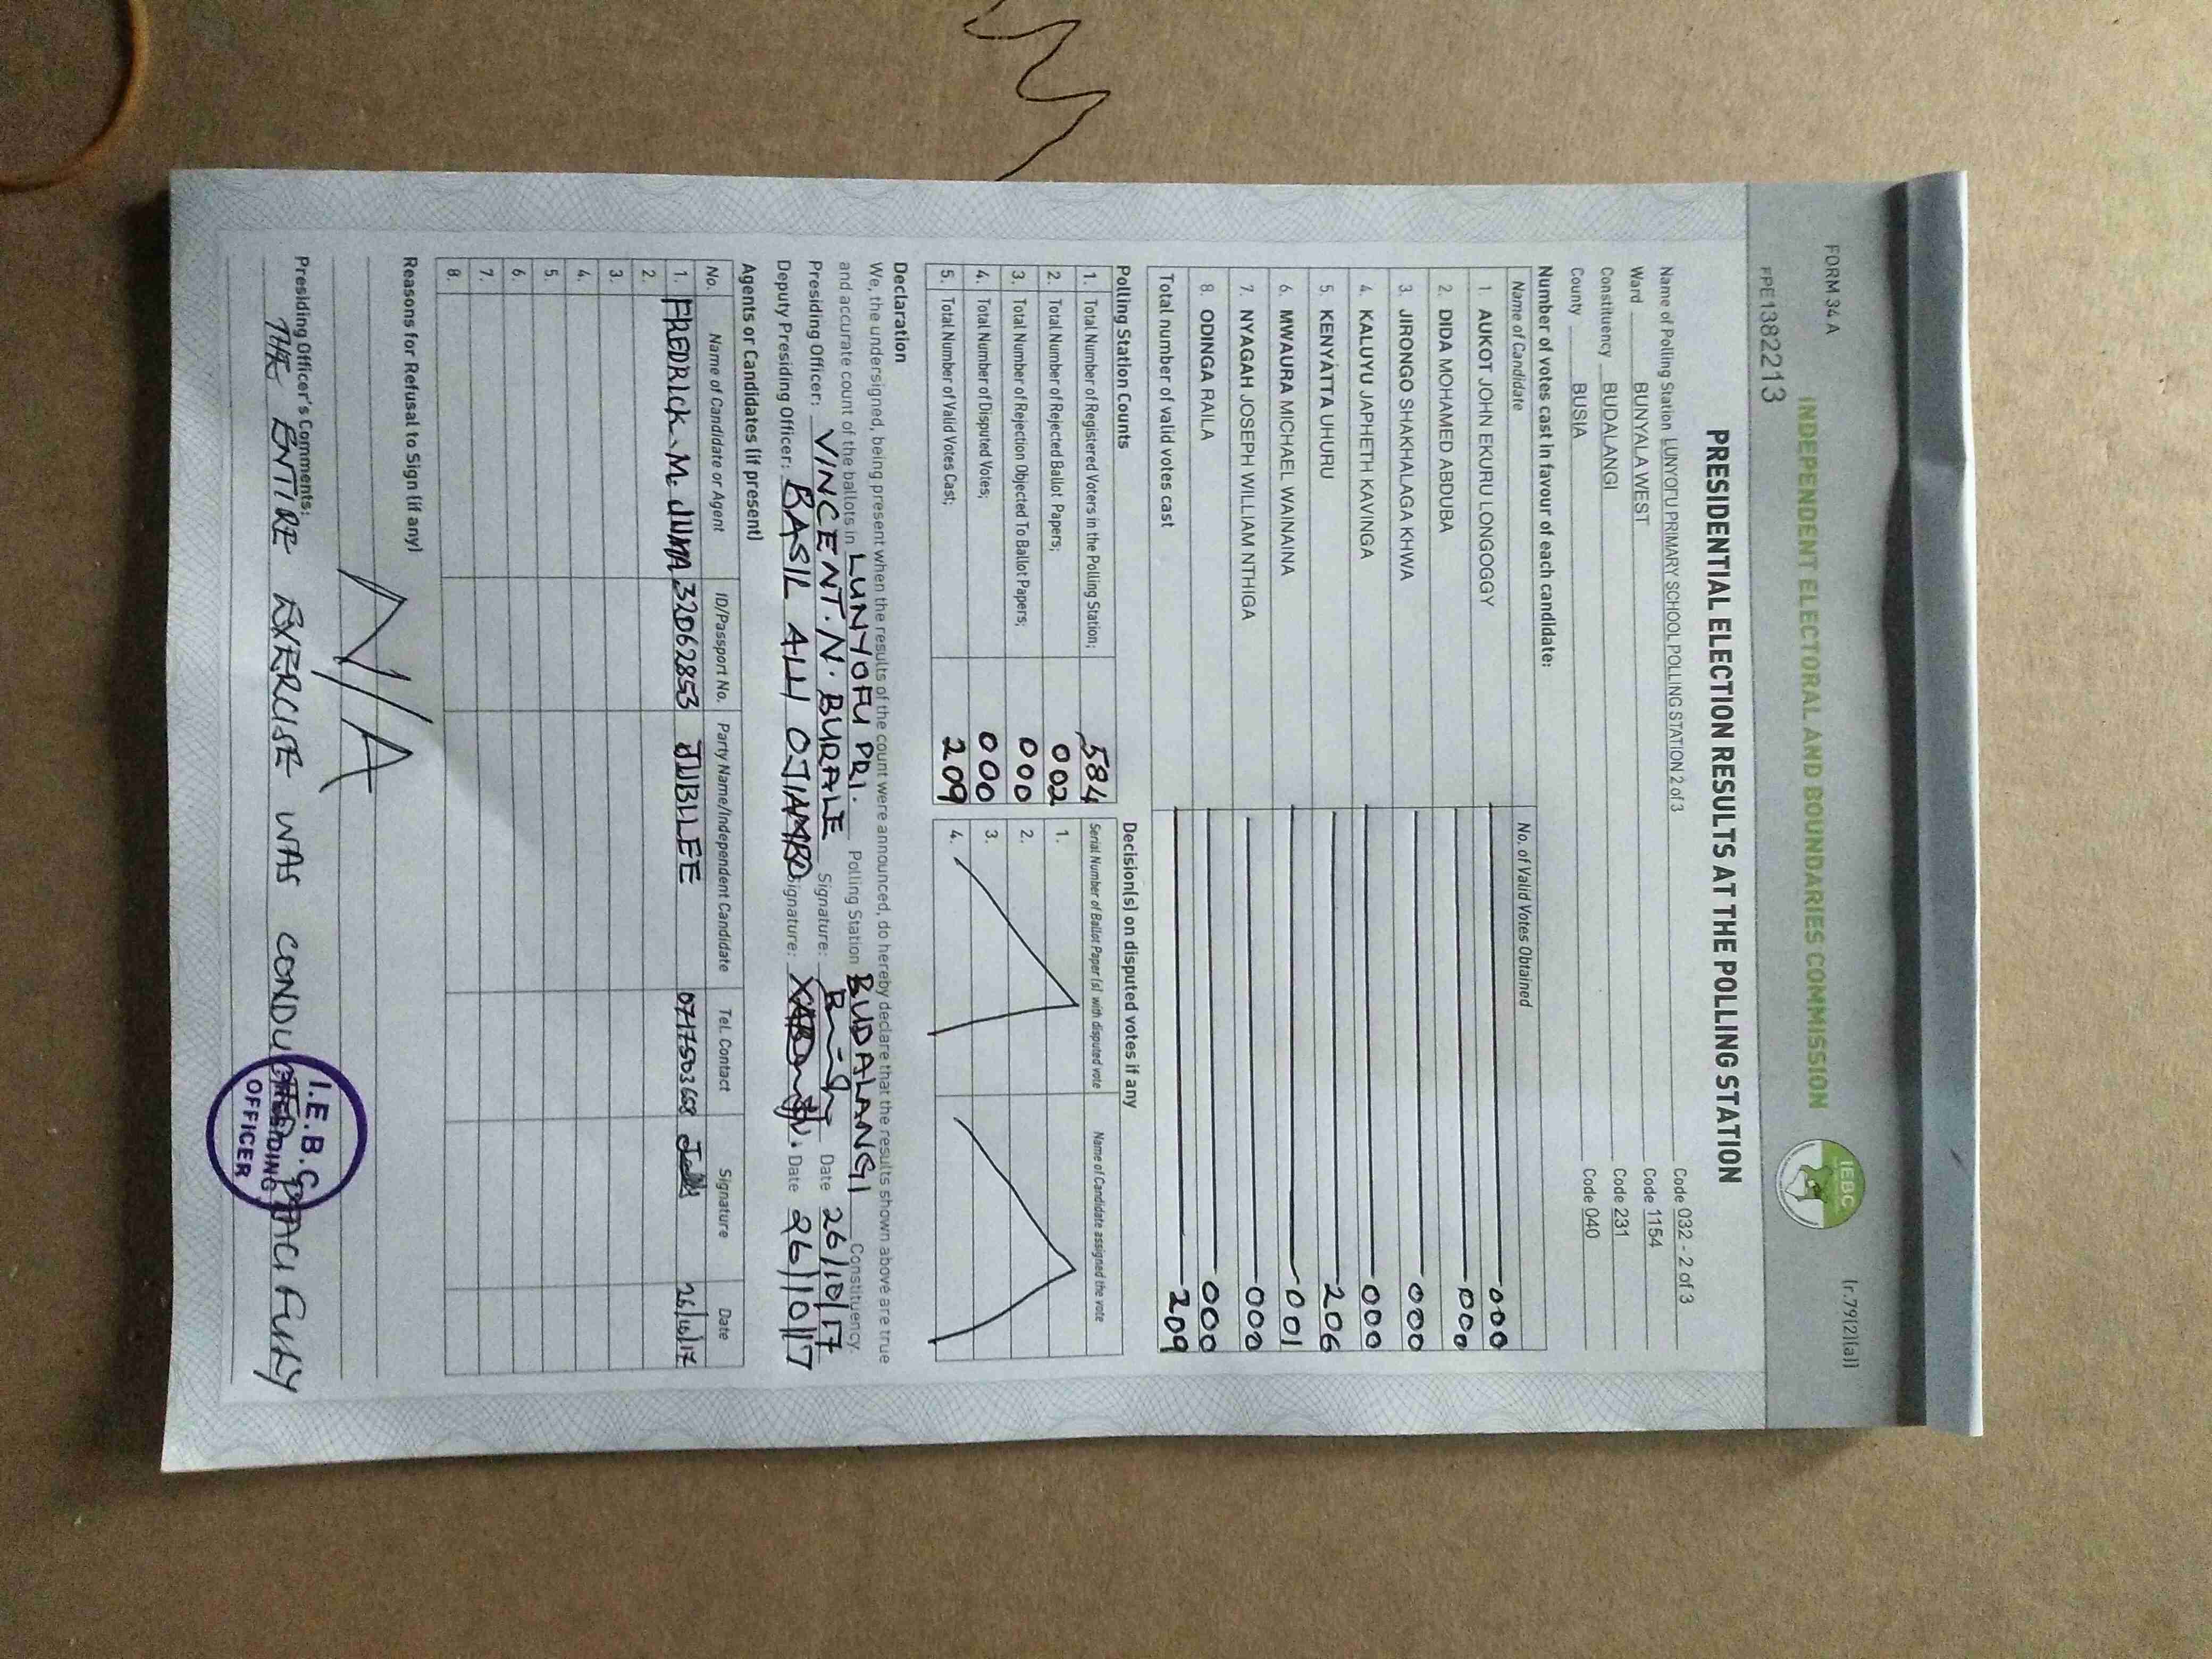 FORM 34 A
(r.79(2)(a))
INDEPENDENT ELECTORAL AND BOUNDARIES COMMISSION
IEBC
PPE1382213
PRESIDENTIAL ELECTION RESULTS AT THE POLLING STATION
Name of Polling Station LUNYOFU PRIMARY SCHOOL POLLING STATION 2 of 3 Code 032 - 2 of 3
Ward BUNYALA WEST Code 1154
Constituency BUDALANGI Code 231
County BUSIA Code 040
Number of votes cast in favour of each candidate:
Name of Candidate No. of Valid Votes Obtained
1. AUKOT JOHN EKURU LONGOGGY 000
2. DIDA MOHAMED ABDUBA 000
3. JIRONGO SHAKHALAGA KHWA 000
4. KALUYU JAPHETH KAVINGA 000
5. KENYATTA UHURU 206
6. MWAURA MICHAEL WAINAINA 001
7. NYAGAH JOSEPH WILLIAM NTHIGA 000
8. ODINGA RAILA 000
Total number of valid votes cast 209
Polling Station Counts
1. Total Number of Registered Voters in the Polling Station; 584
2. Total Number of Rejected Ballot Papers; 002
3. Total Number of Rejection Objected To Ballot Papers; 000
4. Total Number of Disputed Votes; 000
5. Total Number of Valid Votes Cast; 209
Decision(s) on disputed votes if any
Serial Number of Ballot Paper(s) with disputed vote Name of Candidate assigned the vote
1.
2.
3.
4.
Declaration
We, the undersigned, being present when the results of the count were announced, do hereby declare that the results shown above are true
and accurate count of the ballots in LUNYOFU PRI. Polling Station BUDALANGI Constituency.
Presiding Officer: VINCENT. N. BURALE Signature: Date 26/10/17
Deputy Presiding Officer: BASIL ALI OJIAMBO Signature: Date 26/10/17
Agents or Candidates (if present)
No. Name of Candidate or Agent ID/Passport No. Party Name/Independent Candidate Tel. Contact Signature Date
1. FREDRICK M. JUMA 32062853 JUBLLEE 0717503668 26/10/17
2.
3.
4.
5.
6.
7.
8.
Reasons for Refusal to Sign (if any)
N/A
Presiding Officer's Comments:
THE ENTIRE EXERCISE WAS CONDUCTED
I.E.B.C
PRESIDING
OFFICER